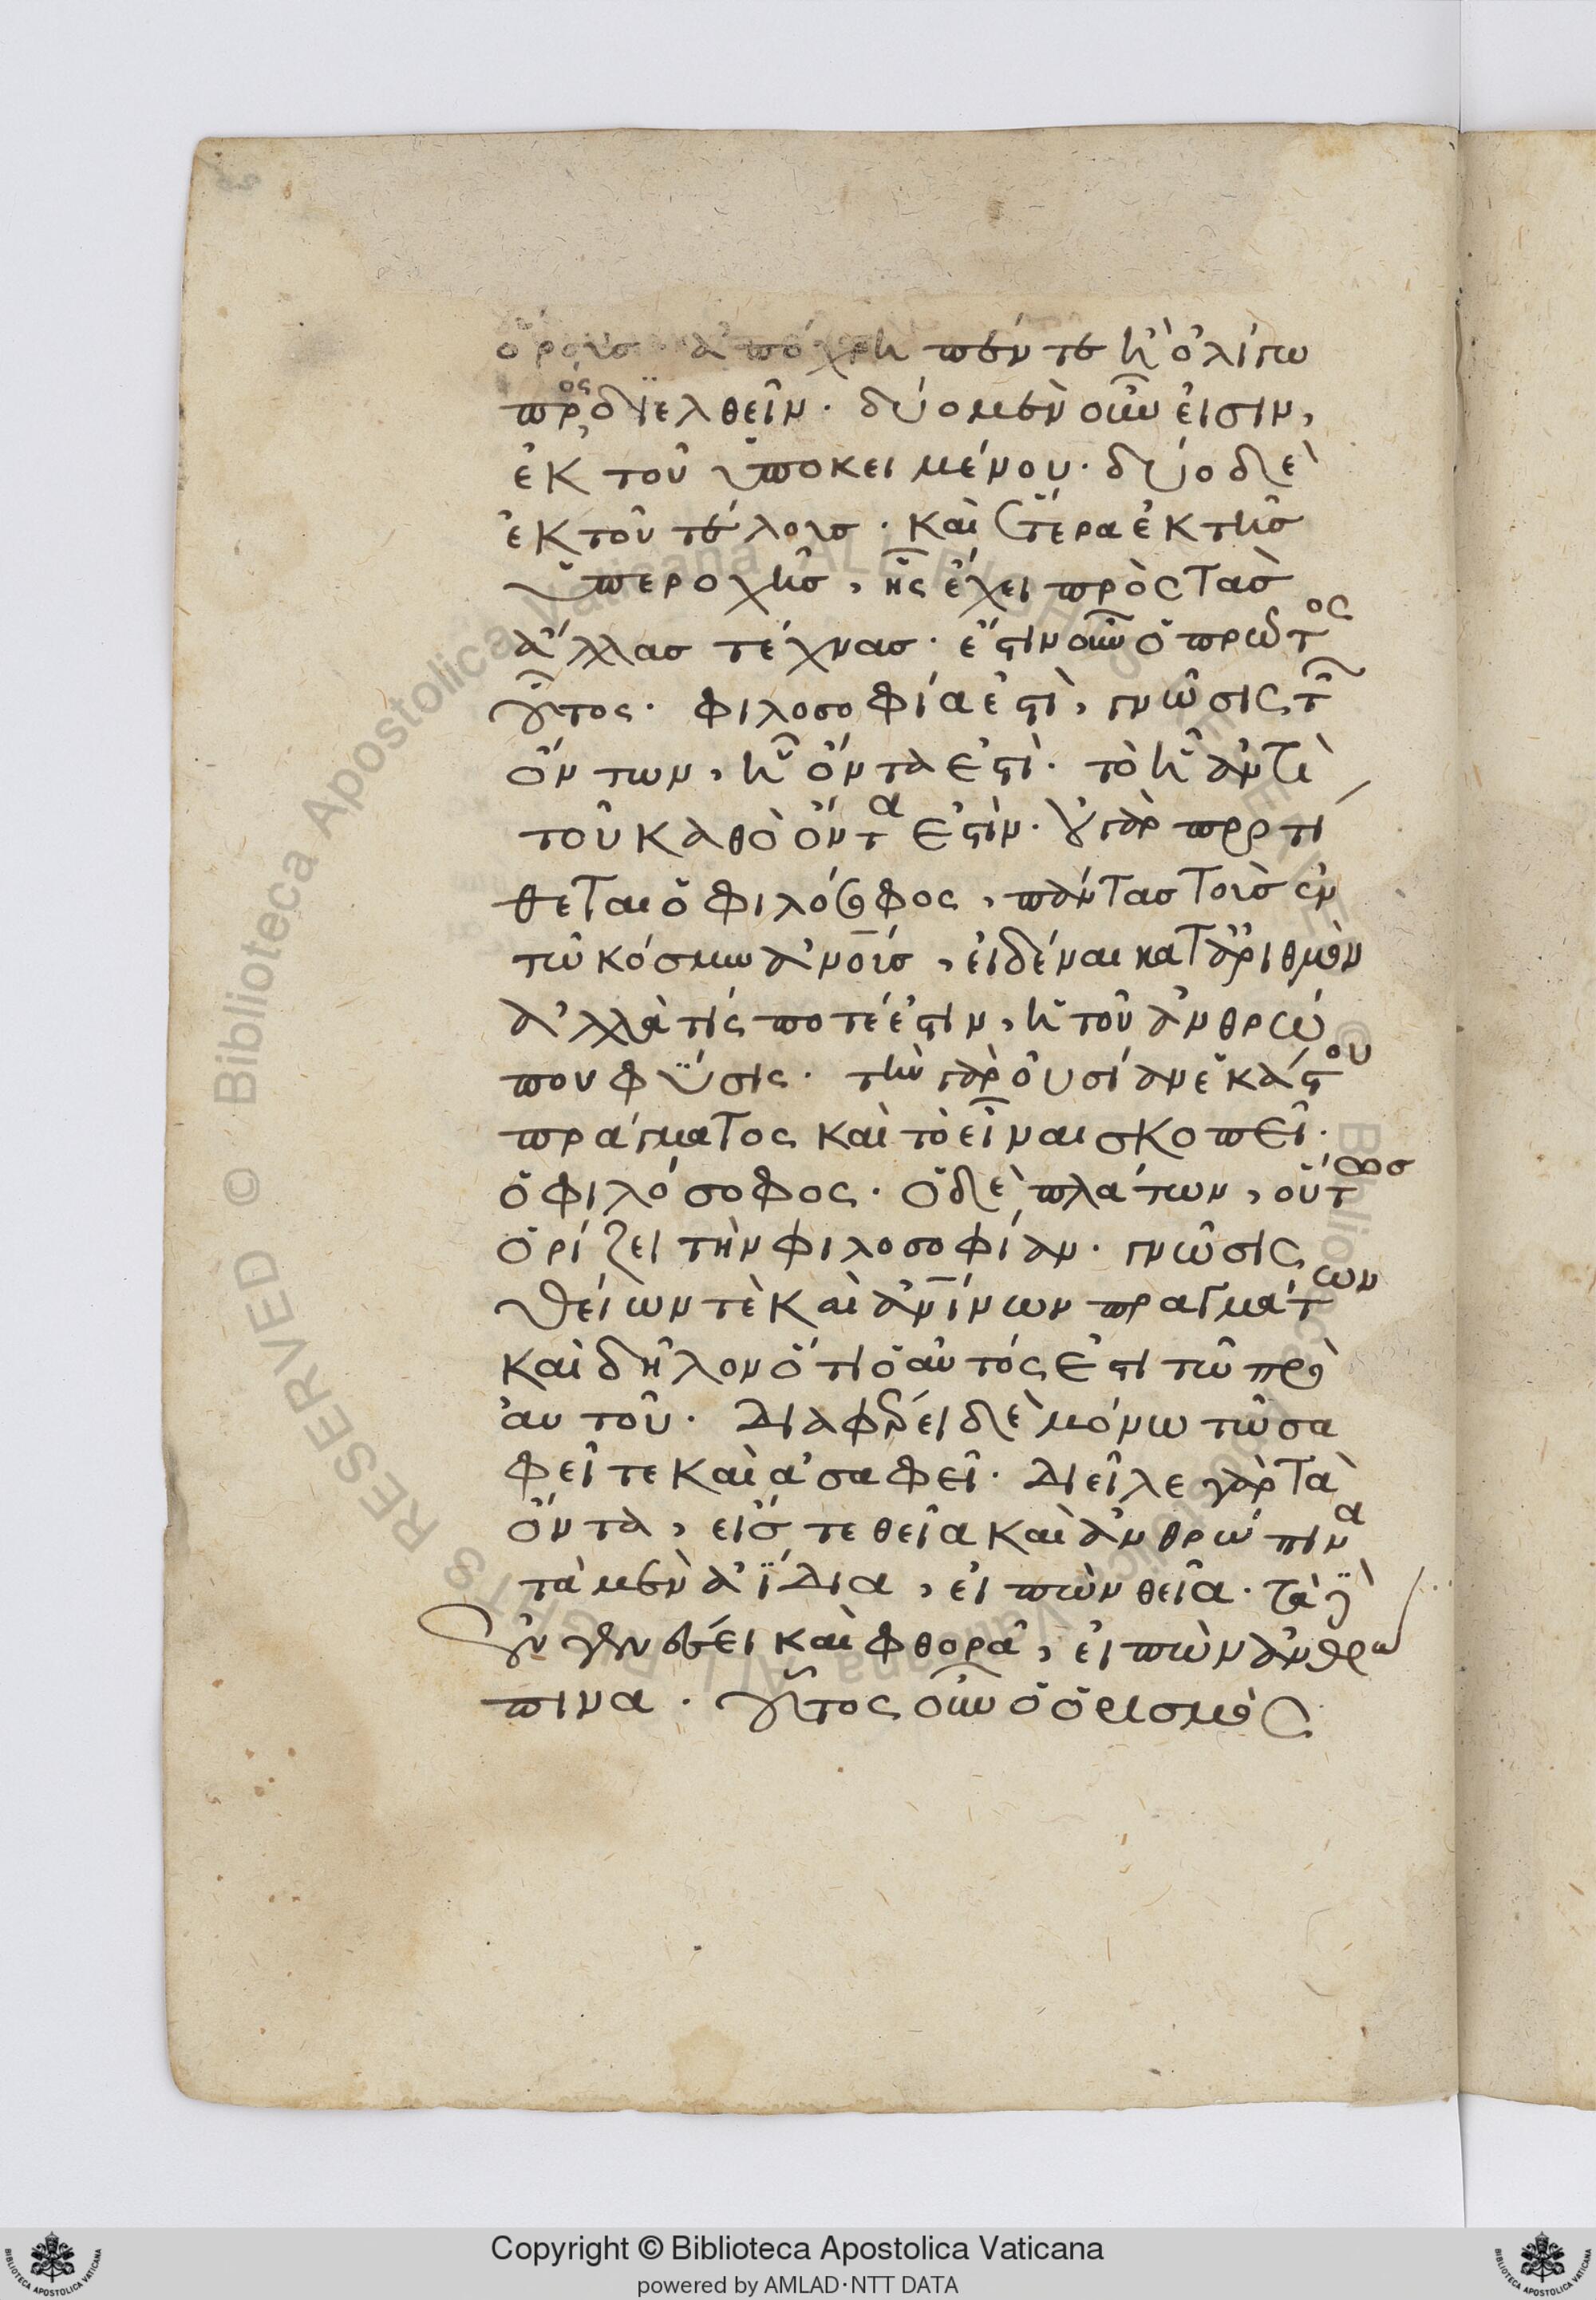 ὅρους ἀπόχρη πέντε ἢ ὀλίγω
πρὸς διελθεῖν. δύο μὲν οὖν εἰσιν,
ἐκ τοῦ ὑποκειμένου. δύο δὲ
ἐκ τοῦ τέλους. καὶ ἕτερα ἐκ τῆς
ὑπεροχῆς, ἧς ἔχει πρὸς τὰς
ἄλλας τέχνας. ἔστιν οὖν ὁ πρῶτος
οὗτος. φιλοσοφία ἐστὶ, γνῶσις τῶν
ὄντων, ᾗ ὄντα ἐστί. τὸ ᾗ ἀντὶ
τοῦ καθὸ ὄντα ἐστίν. οὐ γὰρ προτί
θεται ὁ φιλόσοφος, πάντας τοὺς ἐν
τῶ κόσμω ἀνους, εἰδέναι κατ ἀριθμὸν
ἀλλὰ τίς ποτέ ἐστιν, ἡ τοῦ ἀνθρώ
που φύσις. τὴν γὰρ οὐσίαν ἑκάστου
πράγματος καὶ τὸ εἶναι σκοπεῖ.
ὁ φιλόσοφος. ὁ δὲ πλάτων, οὕτως
ὁρίζει τὴν φιλοσοφίαν. γνῶσις
θείων τὲ καὶ ἀνίνων πραγμάτων
καὶ δῆλον ὅτι ὁ αὐτός ἐστι τῶ πρὸ
αὐτοῦ. διαφέρει δὲ μόνω τῶ σα
φεῖ τε καὶ ἀσαφεῖ. διεῖλε γὰρ τὰ
ὄντα, εἴς τε θεῖα καὶ ἀνθρώπινα
τὰ μὲν ἀΐδια, εἰπὼν θεῖα. τὰ δὲ
ἐν γενέσει καὶ φθορᾶ, εἰπὼν ἀνθρώ
πινα. οὗτος οὖν ὁ ὁρισμὸς
Copyright © Biblioteca Apostolica Vaticana
powered by AMLAD·NTT DATA